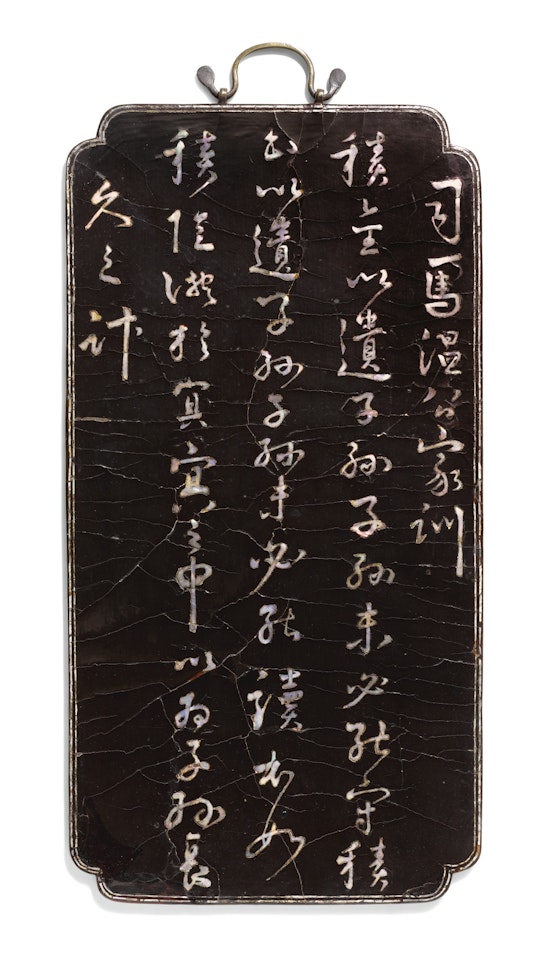 司馬温公家訓
積金以遺子孫子孫未必能守積
書以遺子孫子孫未必能讀不如
積陰德於冥冥之中以為子孫長
久之計